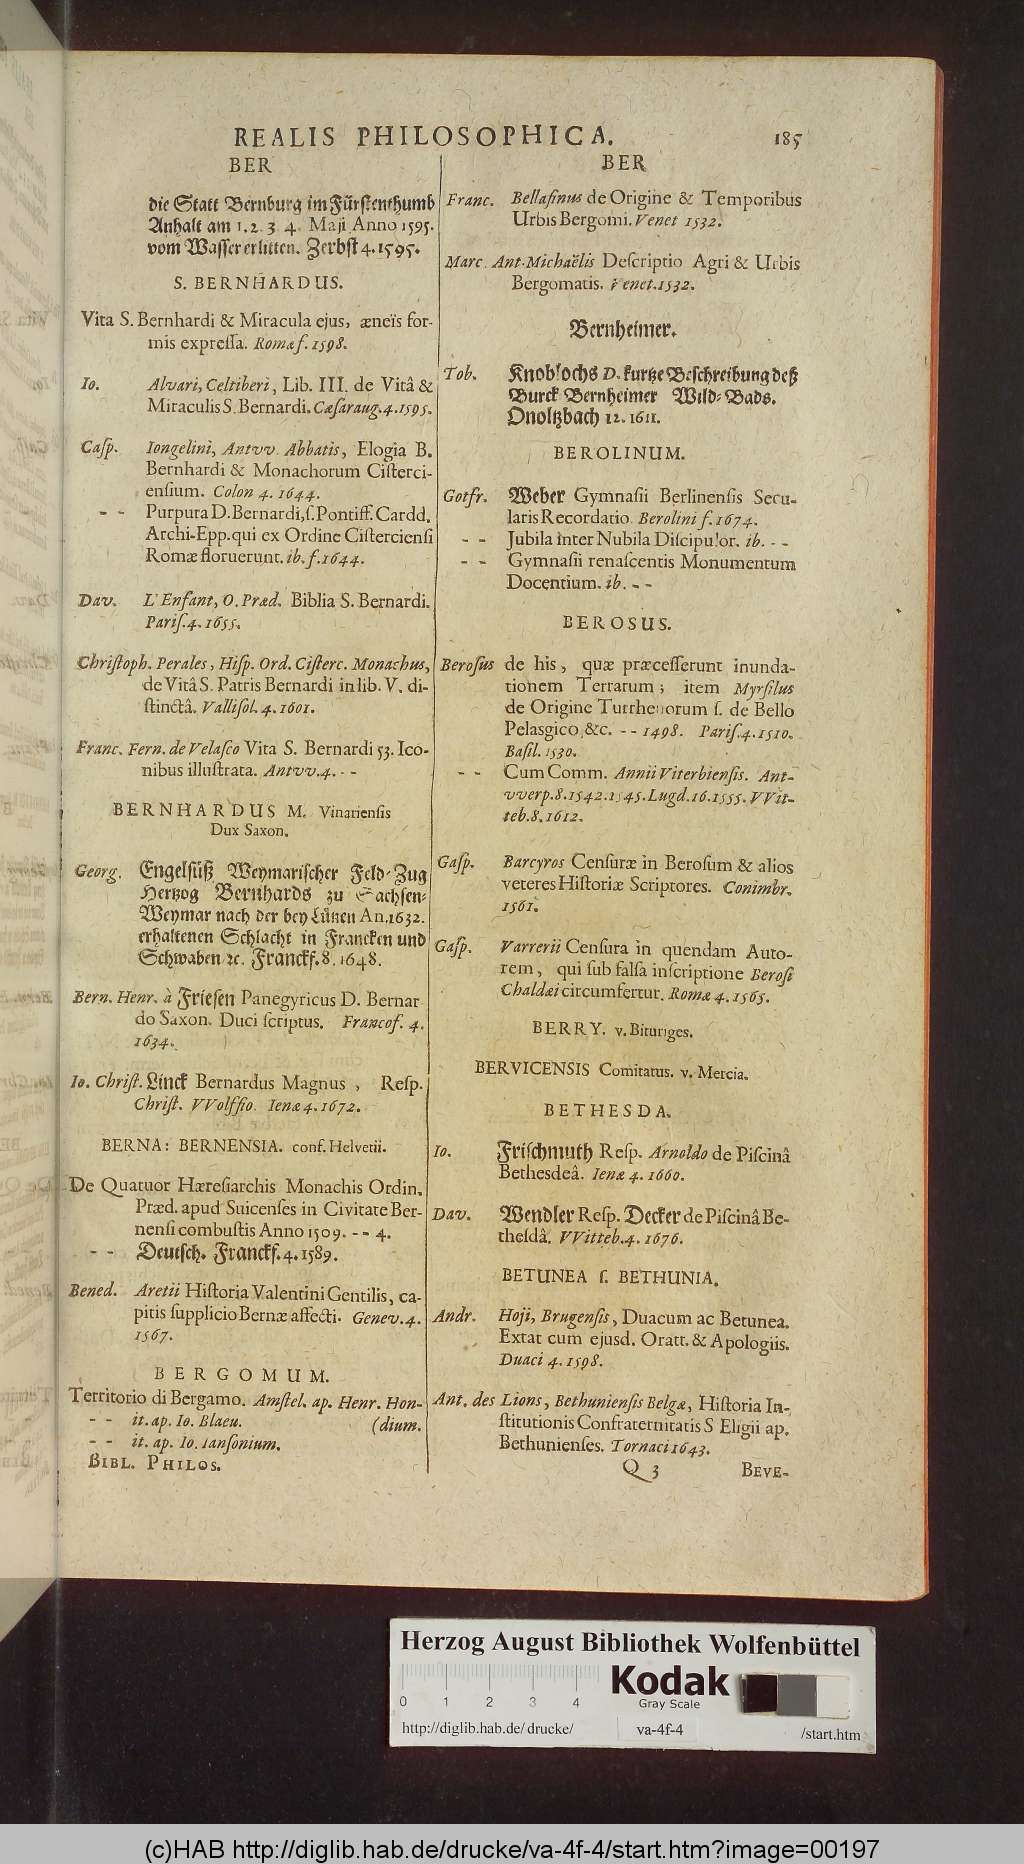 REALIS PHILOSOPHICA. 185
BER
die Statt Bernburg im Fürstenthumb
Anhalt am 1. 2. 3. 4. Maji Anno 1595.
vom Wasser erlitten. Zerbst 4. 1595.
S. BERNHARDUS.
Vita S. Bernhardi & Miracula ejus, æneïs for-
mis expreſſa. Romæ f. 1598.
Io. Alvari, Celtiberi, Lib. III. de Vitâ &
Miraculis S. Bernardi. Cæſaraug. 4. 1595.
Caſp. Iongelini, Antvv. Abbatis, Elogia B.
Bernhardi & Monachorum Ciſterci-
enſium. Colon 4. 1644.
- - Purpura D. Bernardi, ſ. Pontiff. Cardd.
Archi-Epp. qui ex Ordine Ciſtercienſi
Romæ floruerunt. ib. f. 1644.
Dav. L'Enfant, O. Præd. Biblia S. Bernardi.
Pariſ. 4. 1655.
Chriſtoph. Perales, Hiſp. Ord. Ciſterc. Monachus,
de Vitâ S. Patris Bernardi in lib. V. di-
ſtinctâ. Valliſol. 4. 1601.
Franc. Fern. de Velaſco Vita S. Bernardi 53. Ico-
nibus illuſtrata. Antvv. 4. - -
BERNHARDUS M. Vinarienſis
Dux Saxon.
Georg. Engelſüß Weymariſcher Feld-Zug
Hertzog Bernhards zu Sachſen-
Weymar nach der bey Lützen An. 1632.
erhaltenen Schlacht in Francken und
Schwaben ꝛc. Franckf. 8. 1648.
Bern. Henr. à Frieſen Panegyricus D. Bernar
do Saxon. Duci ſcriptus. Francof. 4.
1634.
Io. Chriſt. Linck Bernardus Magnus, Reſp.
Chriſt. VVolffio. Ienæ 4. 1672.
BERNA: BERNENSIA. conf. Helvetii.
De Quatuor Hæreſiarchis Monachis Ordin.
Præd. apud Suicenſes in Civitate Ber-
nenſi combuſtis Anno 1509. - - 4.
- - Deutſch. Franckf. 4. 1589.
Bened. Aretii Hiſtoria Valentini Gentilis, ca-
pitis ſupplicio Bernæ affecti. Genev. 4.
1567.
BERGOMUM.
Territorio di Bergamo. Amſtel. ap. Henr. Hon-
- - it. ap. Io. Blaeu. (dium.
- - it. ap. Io. Ianſonium.
BIBL. PHILOS.
BER
Franc. Bellafinus de Origine & Temporibus
Urbis Bergomi. Venet 1532.
Marc. Ant. Michaëlis Deſcriptio Agri & Urbis
Bergomatis. Venet. 1532.
Bernheimer.
Tob. Knoblochs D. kurtze Beſchreibung deß
Burck Bernheimer Wild-Bads.
Onoltzbach 12. 1611.
BEROLINUM.
Gotfr. Weber Gymnaſii Berlinenſis Secu-
laris Recordatio. Berolini f. 1674.
- - Jubila inter Nubila Diſcipulor. ib. - -
- - Gymnaſii renaſcentis Monumentum
Docentium. ib. - -
BEROSUS.
Beroſus de his, quæ præceſſerunt inunda-
tionem Terrarum; item Myrſilus
de Origine Turrhenorum ſ. de Bello
Pelasgico, &c. - - 1498. Pariſ. 4. 1510.
Baſil. 1530.
- - Cum Comm. Annii Viterbienſis. Ant-
vverp. 8. 1542. 1545. Lugd. 16. 1555. VVit-
teb. 8. 1612.
Gaſp. Barcyros Cenſuræ in Beroſum & alios
veteres Hiſtoriæ Scriptores. Conimbr.
1561.
Gaſp. Varrerii Cenſura in quendam Auto-
rem, qui ſub falſa inſcriptione Beroſi
Chaldæi circumfertur. Romæ 4. 1565.
BERRY. v. Bituriges.
BERVICENSIS Comitatus. v. Mercia.
BETHESDA.
Io. Friſchmuth Reſp. Arnoldo de Piſcinâ
Bethesdeâ. Ienæ 4. 1660.
Dav. Wendler Reſp. Decker de Piſcinâ Be-
thesdâ. VVitteb. 4. 1676.
BETUNEA ſ. BETHUNIA.
Andr. Hoji, Brugenſis, Duacum ac Betunea.
Extat cum ejusd. Oratt. & Apologiis.
Duaci 4. 1598.
Ant. des Lions, Bethunienſis Belgæ, Hiſtoria In-
ſtitutionis Confraternitatis S Eligii ap.
Bethunienſes. Tornaci 1643.
Q 3 BEVE-
Herzog August Bibliothek Wolfenbüttel
0 1 2 3 4
Kodak
Gray Scale
http://diglib.hab.de/drucke/ va-4f-4 /start.htm
(c)HAB http://diglib.hab.de/drucke/va-4f-4/start.htm?image=00197